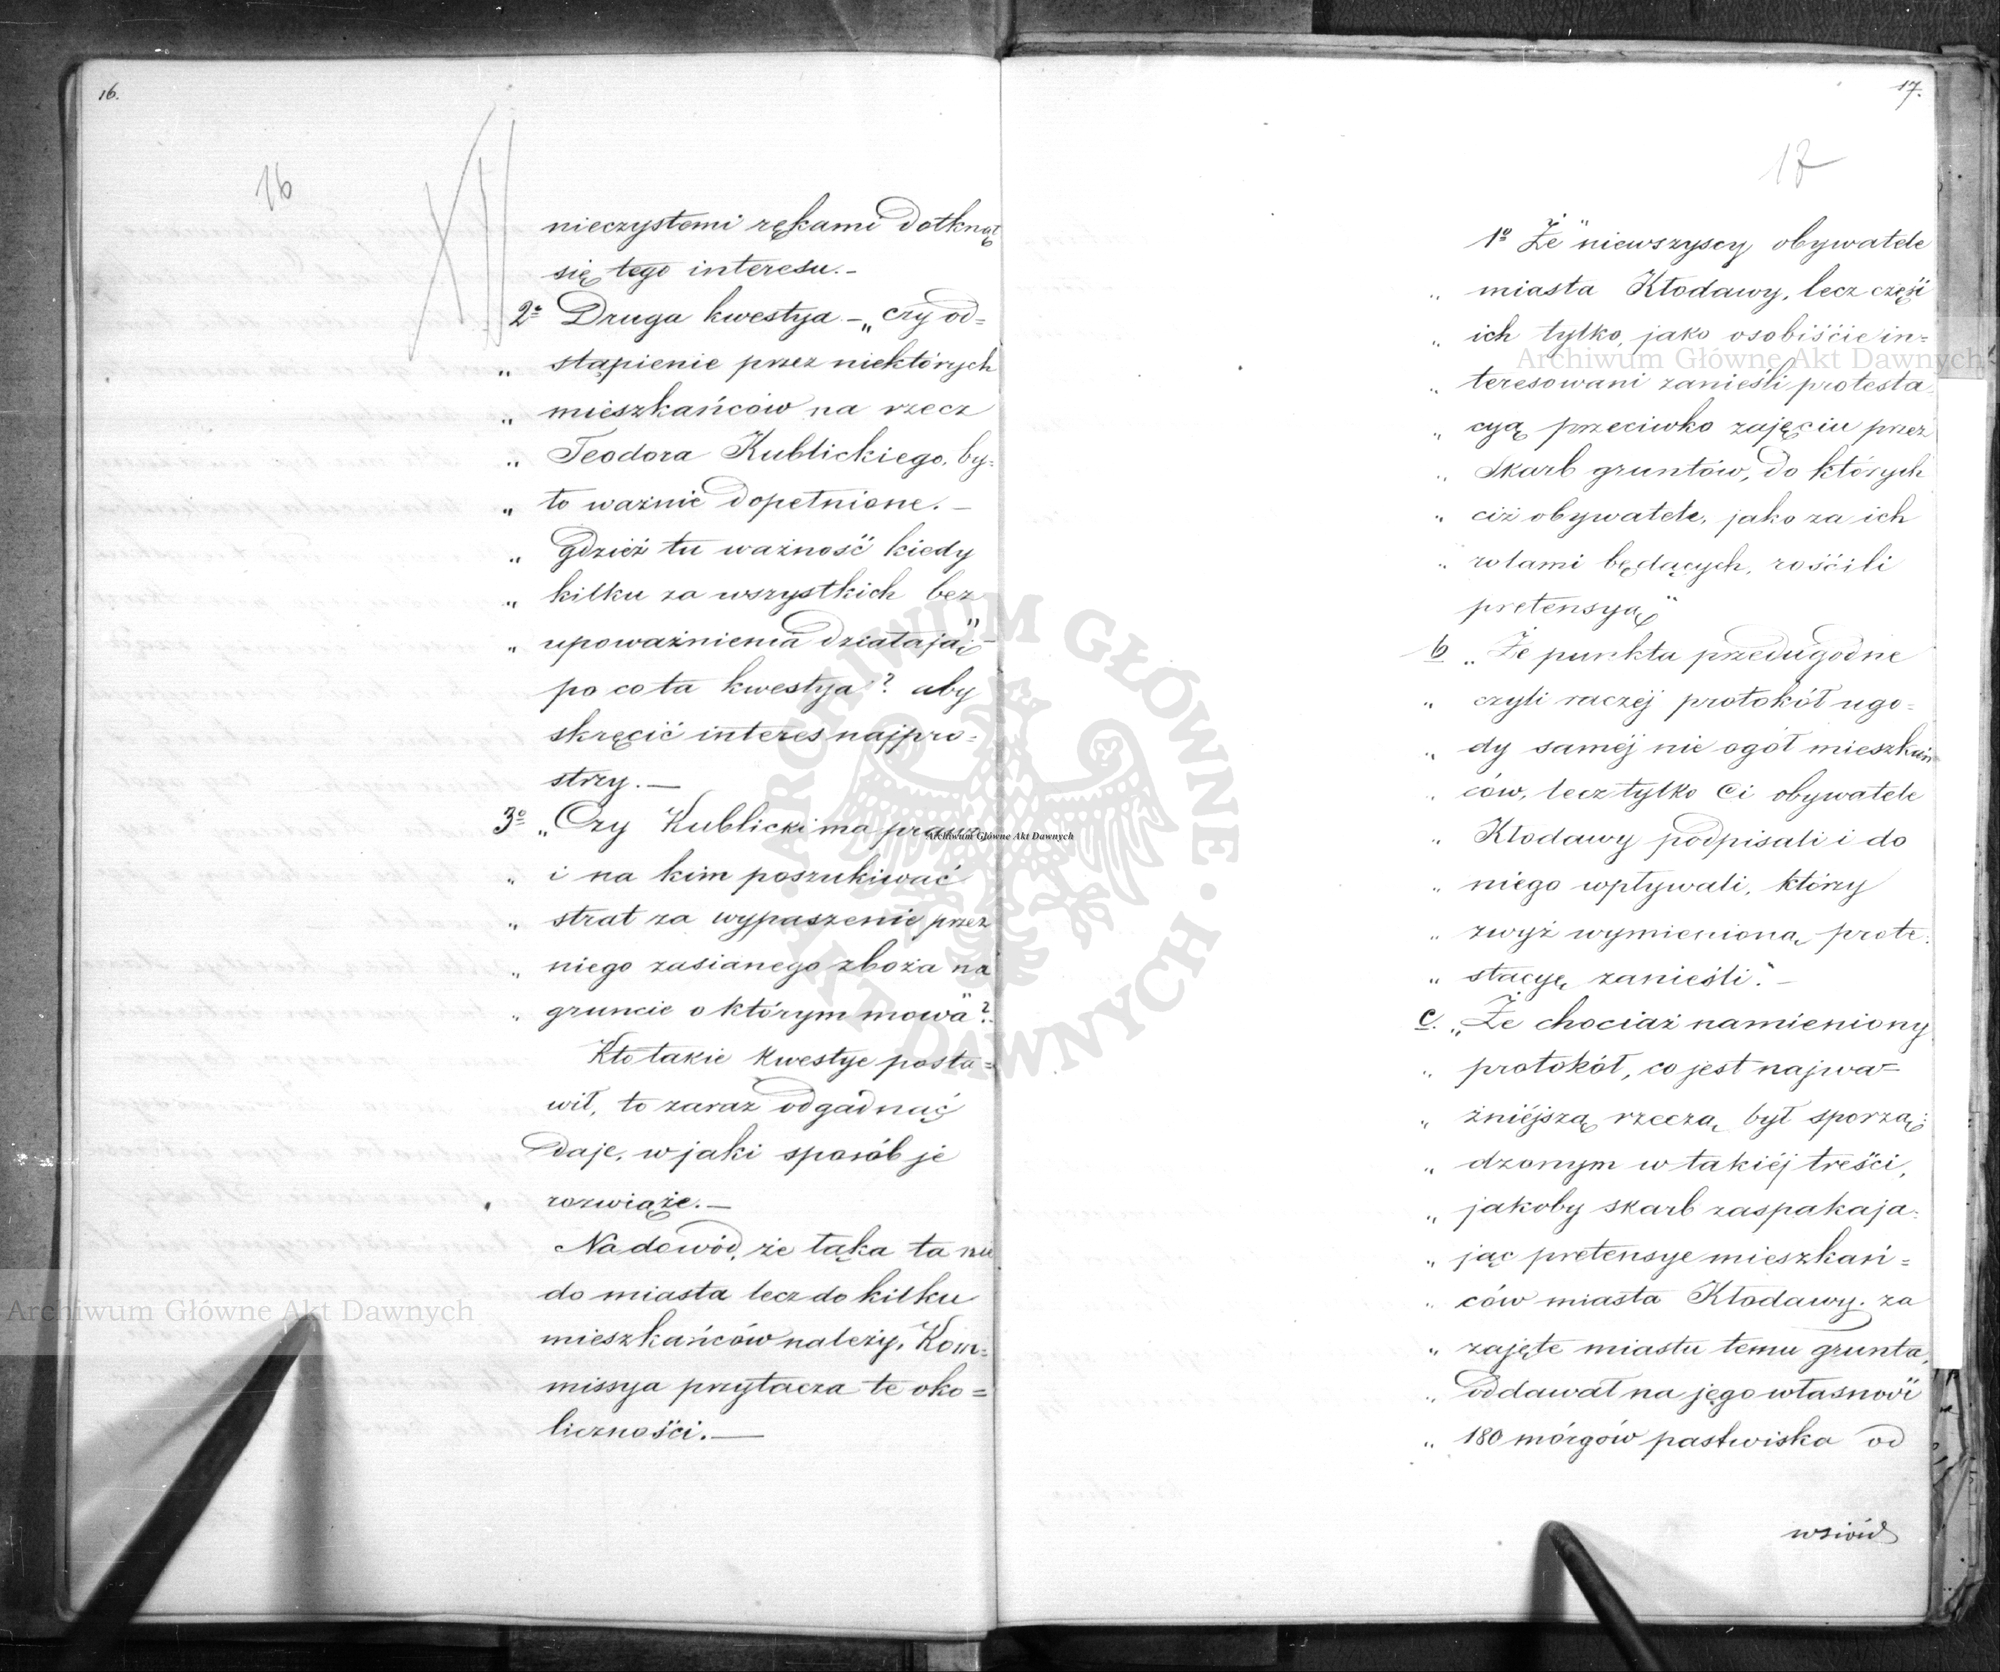 16.
16
XII
nieczystemi rękami dotknąć
się tego interesu.–
2o Druga kwestya – „czy od=
„ stąpienie przez niektórych
„ mieszkańców na rzecz
„ Teodora Kublickiego, by=
„ ło ważnie dopełnione. –
„ gdzież tu ważność kiedy
„ kilku za wszystkich bez
„ upoważnienia działają" –
po co ta kwestya? aby
skręcić interes najpro=
strzy. –
3o „Czy Kublicki ma prawo
„ i na kim poszukiwać
„ strat za wypaszenie przez
„ niego zasianego zboża na
„ gruncie o którym mowa"?
Kto takie kwestye posta=
wił, to zaraz odgadnąć
daje, w jaki sposób je
rozwiąże. –
Na dowód, że łąka ta nie
do miasta lecz do kilku
mieszkańców należy, Kom=
missya przytacza te oko=
liczności. –
17.
17
1o Że "niewszyscy obywatele
„ miasta Kłodawy, lecz część
„ ich tylko, jako osobiście in=
„ teresowani zanieśli protesta
„ cyą przeciwko zajęciu przez
„ Skarb gruntów, do których
„ ciż obywatele, jako za ich
„ rolami będących, rościli
pretensyą"
b „Że punkta przedugodne
„ czyli raczéj protokół ugo=
„ dy saméj nie ogół mieszkań
„ ców, lecz tylko Ci obywatele
„ Kłodawy podpisali i do
„ niego wpływali, którzy
„ zwyż wymienioną prote=
„ stacyę zanieśli". –
c. „Że chociaż namieniony
„ protokół, co jest najwa=
„ żniéjszą rzeczą, był sporzą=
„ dzonym w takiéj treści,
„ jakoby skarb zaspakaja=
„ jąc pretensye mieszkań=
„ ców miasta Kłodawy, za
„ zajęte miastu temu grunta,
„ oddawał na jego własność
„ 180 mórgów pastwiska od
wsiów
Archiwum Główne Akt Dawnych
Archiwum Główne Akt Dawnych
Archiwum Główne Akt Dawnych
ARCHIWUM GŁÓWNE · AKT DAWNYCH ·